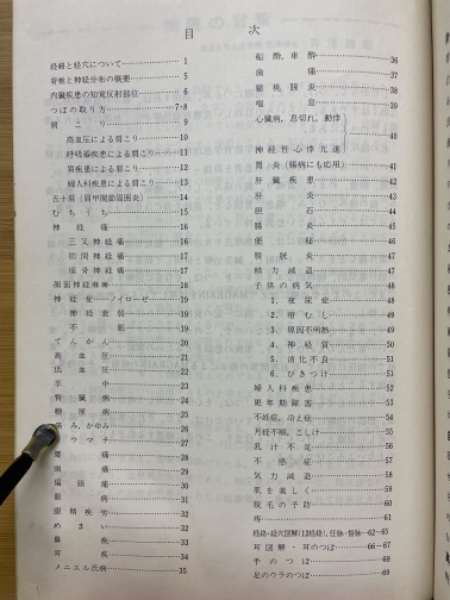 目次
経絡と経穴について 1
脊椎と神経分布の概要 5
内臓疾患の知覚反射部位 6
つぼの取り方 7-8
肩こり 9
高血圧による肩こり 10
呼吸器疾患による肩こり 11
胃疾患による肩こり 12
婦人科疾患による肩こり 13
五十肩(肩甲関節周囲炎) 14
むちうち 15
神経痛 16
三叉神経痛 16
肋間神経痛 17
坐骨神経痛 17
顔面神経麻痺 18
神経症—ノイローゼ 19
神経衰弱 19
不眠 19
てんかん 20
高血圧 21
低血圧 22
卒中 23
腎臓病 24
糖尿病 25
痛み,かゆみ 26
ウマチ 27
腰痛 28
頭痛 29
偏頭痛 30
眼病 31
眼精疲労 32
めまい 32
鼻疾 33
耳疾 34
メニエル氏病 35
船酔,車酔 36
歯痛 37
扁桃腺炎 38
喘息 39
心臓病,息切れ,動悸
神経性心悸亢進 40
胃炎(腸病にも応用) 41
肝臓疾患 42
肝炎 43
胆石 44
腸炎 45
便秘 46
膀胱炎 47
精力減退 47
子供の病気 48
1.夜尿症 48
2.疳むし 49
3.原因不明熱 49
4.神経質 50
5.消化不良 51
6.ひきつけ 51
婦人科疾患 52
更年期障害 53
不妊症,冷え症 54
月経不順,こしけ 55
乳汁不足 56
不感症 57
気力減退 58
肌を美しく 59
脱毛の予防 60
痔 61
経絡・経穴図解(12経絡),任脉・督脉 62-65
耳図解・耳のつぼ 66-67
手のつぼ 68
足のウラのつぼ 69